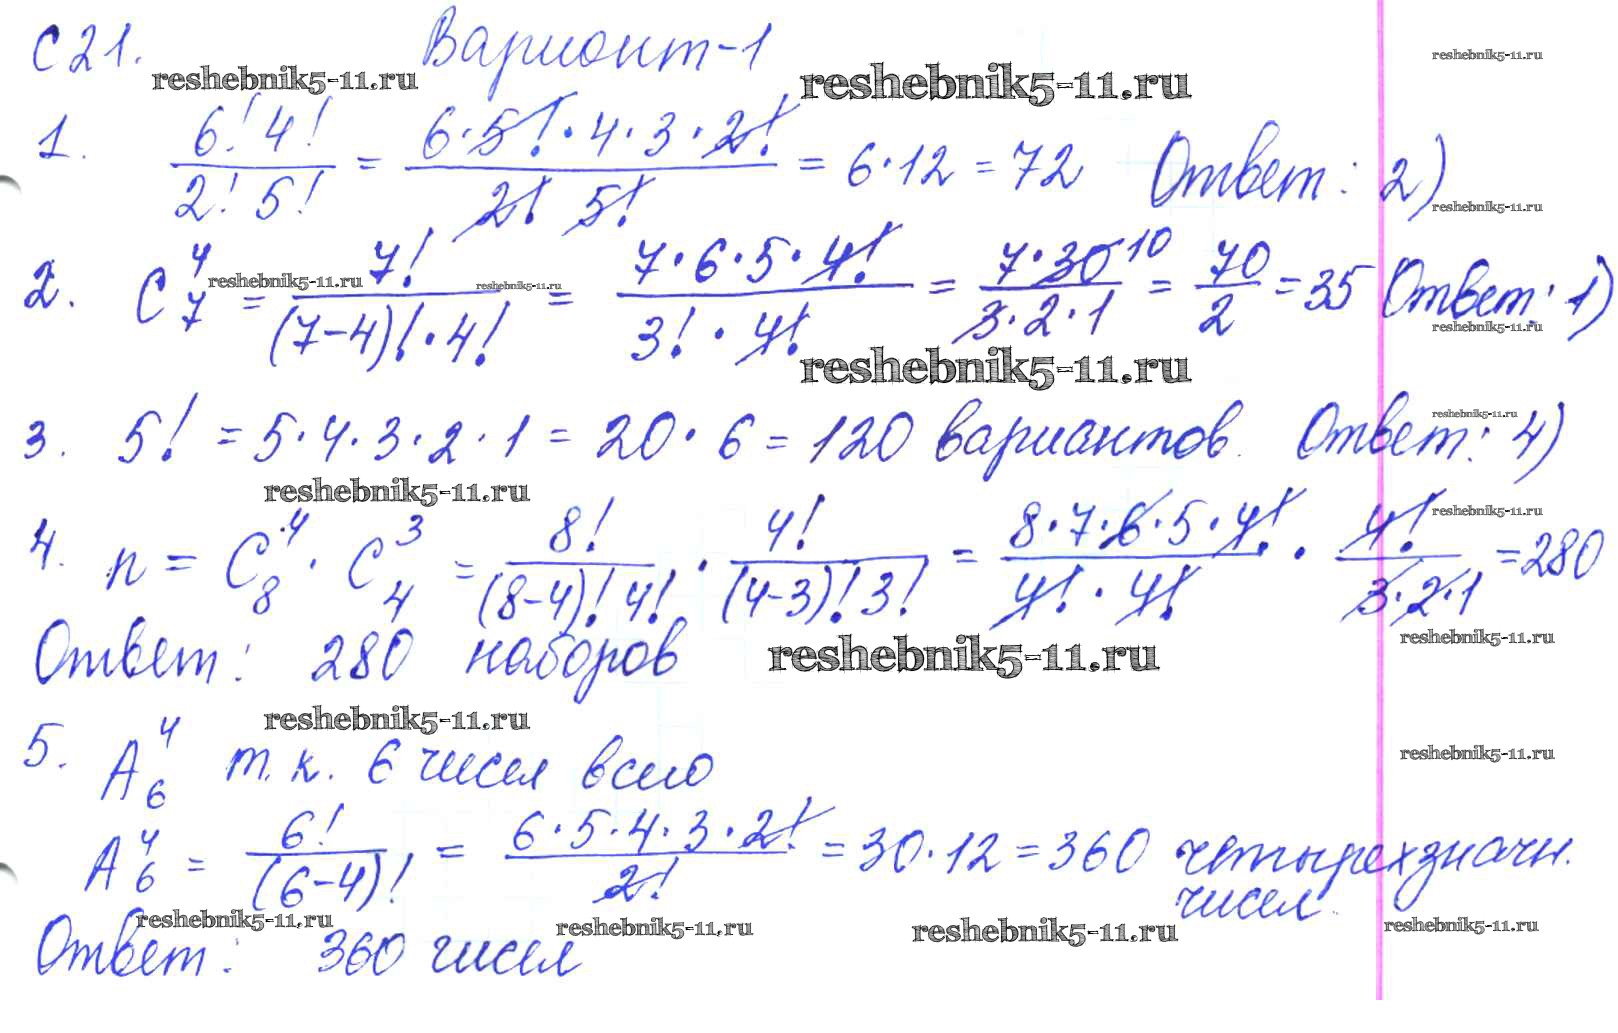 С 21. Вариант-1
reshebnik5-11.ru reshebnik5-11.ru reshebnik5-11.ru
1. 6! 4! / 2! 5! = 6·5!·4·3·2! / 2! 5! = 6·12 = 72 Ответ: 2)
reshebnik5-11.ru
2. C₇⁴ = 7! / (7-4)!·4! = 7·6·5·4! / 3!·4! = 7·30 10 / 3·2·1 = 70 / 2 = 35 Ответ: 1)
reshebnik5-11.ru reshebnik5-11.ru reshebnik5-11.ru
reshebnik5-11.ru
3. 5! = 5·4·3·2·1 = 20·6 = 120 вариантов. Ответ: 4)
reshebnik5-11.ru
reshebnik5-11.ru reshebnik5-11.ru
4. n = C₈⁴ · C₄³ = 8! / (8-4)! 4! · 4! / (4-3)! 3! = 8·7·6·5·4! / 4!·4! · 4! / 3·2·1 = 280
Ответ: 280 наборов
reshebnik5-11.ru reshebnik5-11.ru
reshebnik5-11.ru
5. A₆⁴ т.к. 6 чисел всего
reshebnik5-11.ru
A₆⁴ = 6! / (6-4)! = 6·5·4·3·2! / 2! = 30·12 = 360 четырехзначн.
чисел.
reshebnik5-11.ru reshebnik5-11.ru reshebnik5-11.ru reshebnik5-11.ru
Ответ: 360 чисел